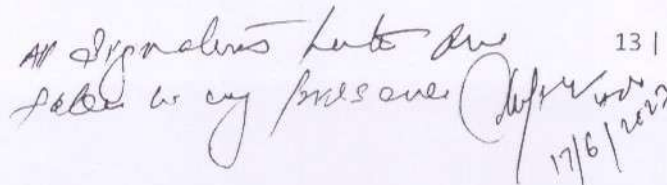 All Signatures hereto are 13 |
taken in my presence
17/6/2022